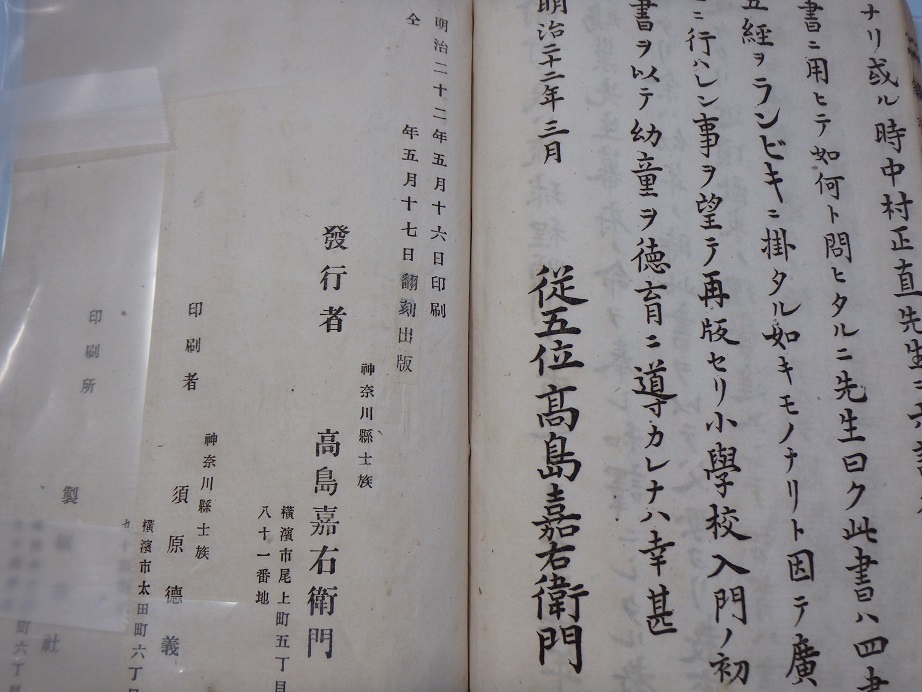 ナリ或ル時中村正直先生
書ニ用ヒテ如何ト問ヒタルニ先生曰ク此書ハ四書
五經ヲランビキニ掛タル如キモノナリト因テ廣
ニ行ハレン事ヲ望テ再版セリ小學校入門ノ初
書ヲ以テ幼童ヲ徳育ニ導カレナハ幸甚
明治二十二年三月
從五位髙島嘉右衛門
明治二十二年五月十六日印刷
仝年五月十七日翻刻出版
神奈川縣士族
發行者 高島嘉右衛門
橫濱市尾上町五丁目
八十一番地
神奈川縣士族
印刷者 須原德義
橫濱市太田町六丁目
印刷所 製 社